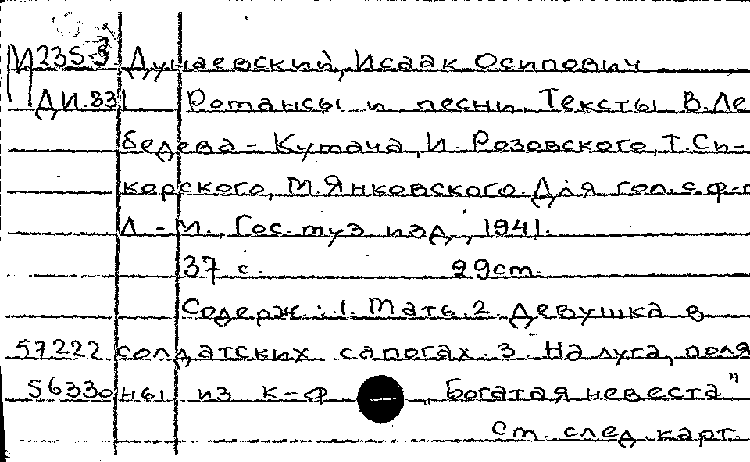 М235-3 Дунаевский, Исаак Осипович
ДИ.831 Романсы и песни. Тексты В. Ле
бедева-Кумача, И. Розовского, Т. Си-
корского, М. Янковского. Для гол. с ф-п
Л.-М., Гос. муз. изд., 1941.
37 с. 29 cm.
Содерж.: 1. Мать. 2. Девушка в
57222 солдатских сапогах. 3. На луга, поля
56330 ны из к-ф „Богатая невеста"
См. след. карт.